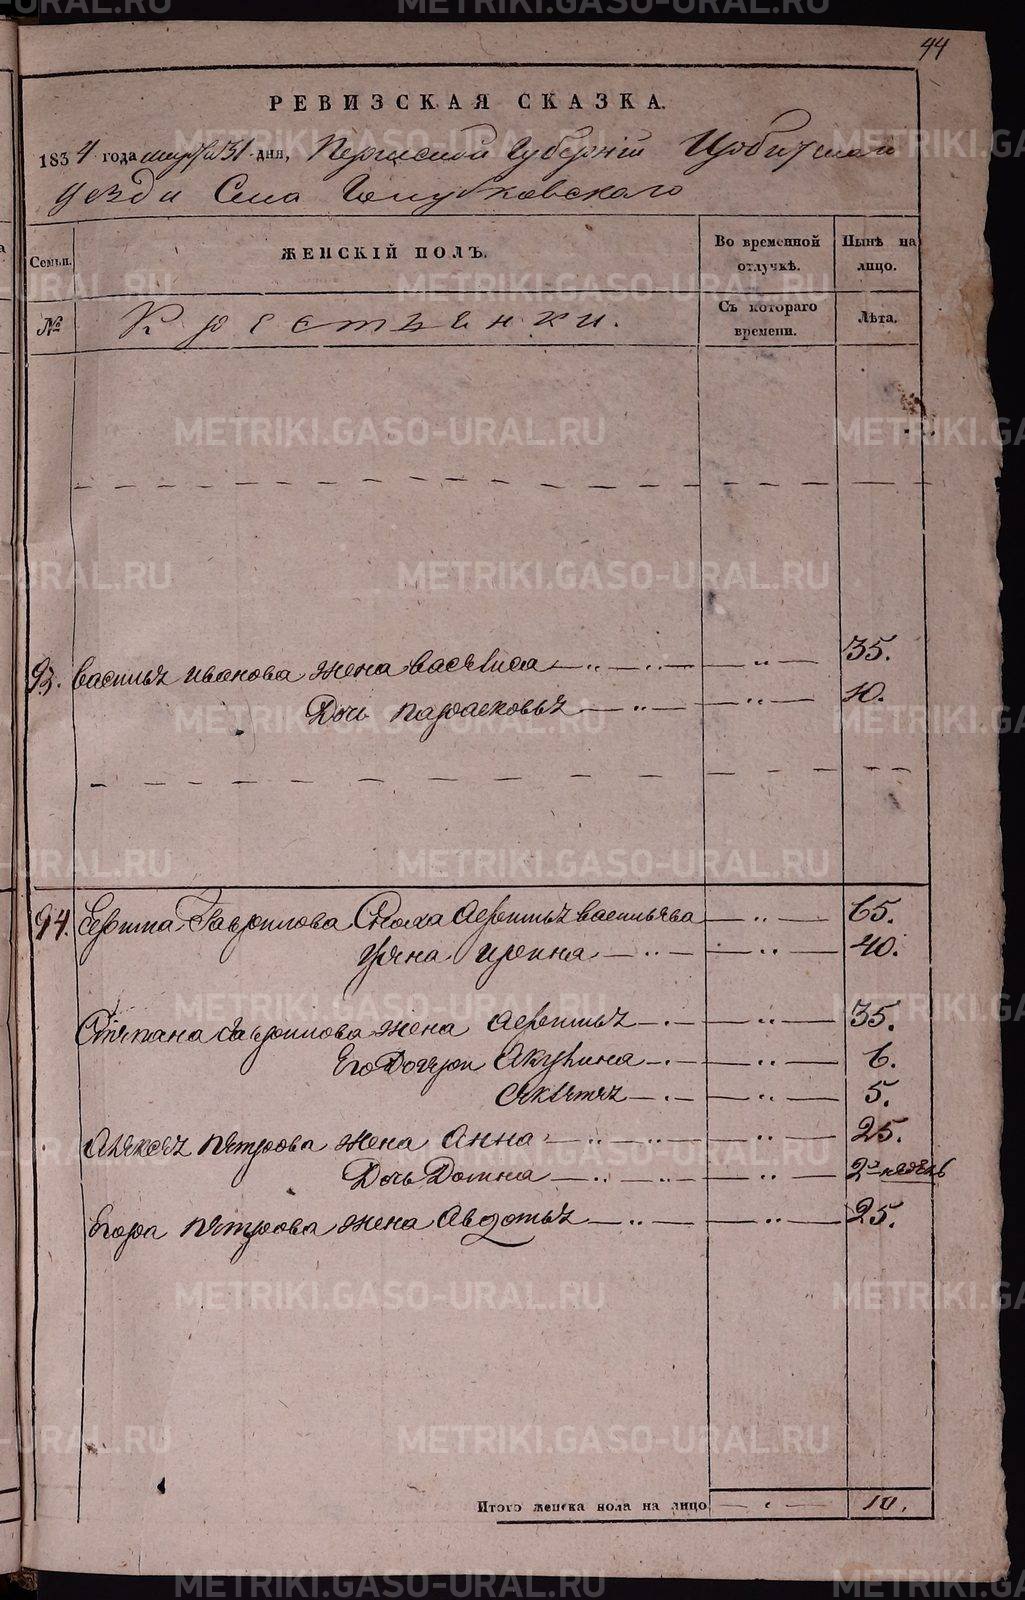 44
РЕВИЗСКАЯ СКАЗКА.
1834 года марта 31 дня, Пермской Губернiи Ирбитскаго
уезда Села Голубковскаго
Семьи. ЖЕНСКІЙ ПОЛЪ. Во временной отлучкѣ. Нынѣ на лицо.
№ Крестьянки. Съ котораго времени. Лѣта.
93. Василья Иванова жена Василиса 35.
Дочь Парасковья 10.
94. Гаврилова Сноха Афимья Васильева 65.
Ирина 40.
Степана Гаврилова жена Афимья 35.
Его Дочери Акулина 6.
5.
Алексея Петрова жена Анна 25.
Дочь Домна 2х недель
Егора Петрова жена Авдотья 25.
Итого женска пола на лицо 10.
METRIKI.GASO-URAL.RU